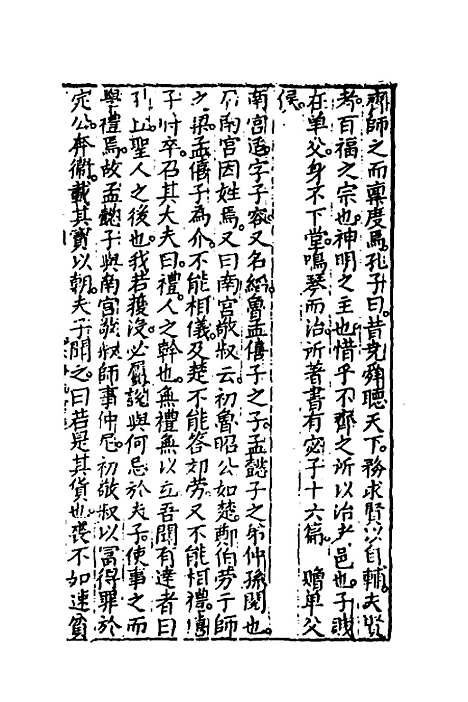 齊師之而稟度焉孔子曰昔堯舜聽天下務求賢以自輔夫賢
者百福之宗也神明之主也惜乎不齊之所以治者邑也子賤
在單父身不下堂鳴琴而治所著書有宓子十六篇　贈單父
侯
南宮适字子容又名縚魯孟僖子之子孟懿子之弟仲孫閱也
南宮因姓焉又曰南宮敬叔云初魯昭公如楚鄭伯勞于師
之梁孟僖子為介不能相儀及楚不能答郊勞又不能相禮僖
子將卒召其大夫曰禮人之幹也無禮無以立吾聞有達者曰
孔丘聖人之後也我若獲沒必屬說與何忌於夫子使事之而
學禮焉故孟懿子與南宮敬叔師事仲尼初敬叔以富得罪於
定公奔衞載其寶以朝夫子聞之曰若是其貨也喪不如速貧